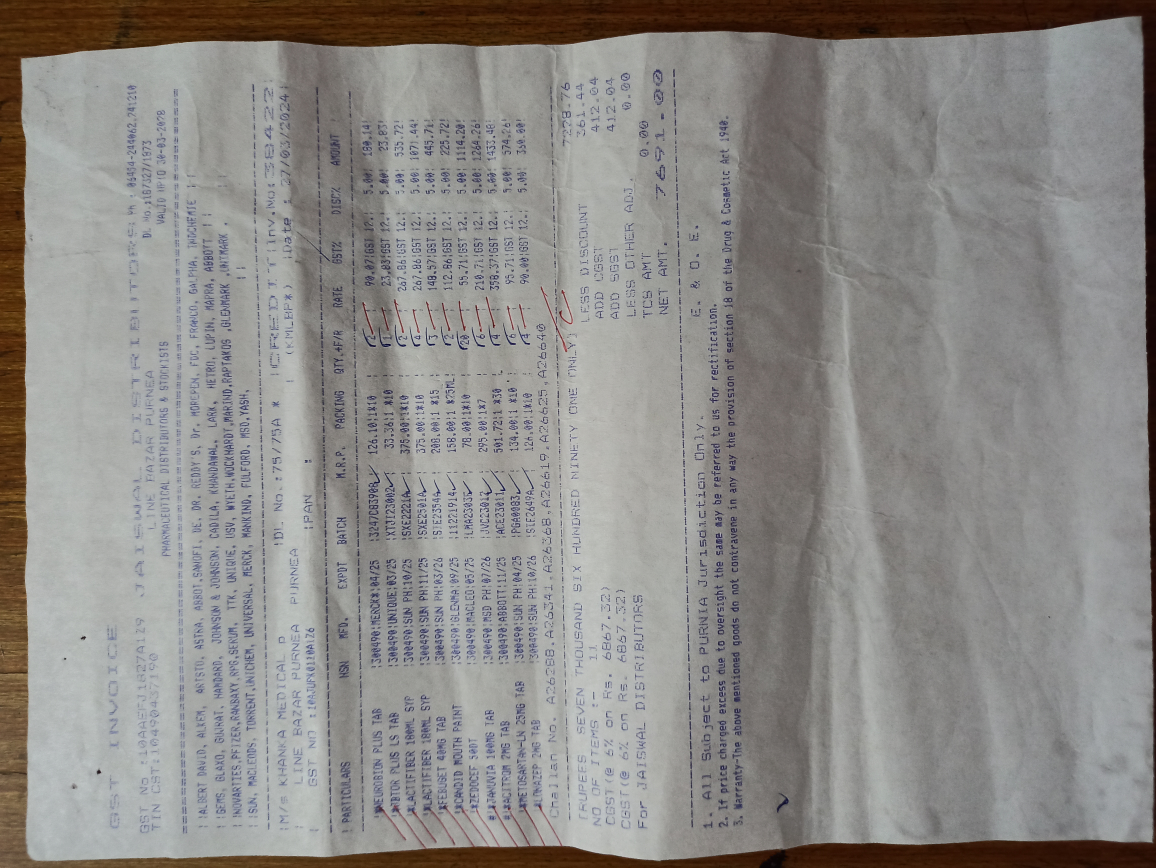 GST INVOICE
GST No.:10AAEFJ1827A1Z9 JAISWAL DISTRIBUTORS. PH : 06454-244062,241210
TIN CST:10490437190 LINE BAZAR PURNEA DL No.:187327/1973
PHARMACEUTICAL DISTRIBUTORS & STOCKISTS VALID UPTO 30-03-2028
ALBERT DAVID, ALKEM, ARISTO, ASTRA, ABBOT,SANOFI, UE, DR. REDDY'S, Dr. MOREPEN, FDC, FRANCO, GALPHA, INDCHEMIE
GEMS, GLAXO, GUJRAT, HAMDARD, JOHNSON & JOHNSON, CADILA, KHANDAWAL, LARK, HETRO, LUPIN, MAPRA, ABBOTT
NOVARTIES,PFIZER,RANBAXY,RPG,SERUM, TTK, UNIQUE, USV, WYETH,WOCKHARDT,MARIND,RAPTAKOS ,GLENMARK ,INTMARK .
SUN, MACLEODS, TORRENT,UNICHEM, UNIVERSAL, MERCK, MANKIND, FULFORD, MSD,YASH,
M/s KHANKA MEDICAL P DL No.:75/75A * CREDIT Inv.No:38422
LINE BAZAR PURNEA PURNEA (KMLBP*) Date : 27/03/2024
GST NO :10AJUPK0110A1Z6 PAN :
PARTICULARS HSN MFD. EXPDT BATCH M.R.P. PACKING QTY.+F/R RATE GST% DIS% AMOUNT
*NEUROBION PLUS TAB 300490 MERCK* 04/25 3247C8390B 126.10 1*10 2 90.07 GST 12. 5.00 180.14
*VIBTOR PLUS LS TAB 300490 UNIQUE 03/25 XT3I23002 33.36 1 *10 1 23.83 GST 12. 5.00 23.83
*LACTIFIBER 180ML SYP 300490 SUN PH 10/25 SXE2221A 375.00 1*10 2 267.86 GST 12. 5.00 535.72
*LACTIFIBER 180ML SYP 300490 SUN PH 11/25 SXE2501A 375.00 1*10 4 267.86 GST 12. 5.00 1071.44
*FEBUGET 40MG TAB 300490 SUN PH 03/26 SIE2354A 208.00 1 *15 3 148.57 GST 12. 5.00 445.71
*CANDID MOUTH PAINT 300490 GLENMA 09/25 11221914 158.00 1 *25ML 2 112.86 GST 12. 5.00 225.72
*ZEDOCEF 50DT 300490 MACLEO 05/25 LMA2303C 78.00 1*10 20 55.71 GST 12. 5.00 1114.20
#*JANUVIA 100MG TAB 300490 MSD PH 07/26 JVC23012 295.00 1*7 6 210.71 GST 12. 5.00 1264.26
#*ACITROM 2MG TAB 300490 ABBOTT 11/25 ACE23011 501.72 1 *30 4 358.37 GST 12. 5.00 1433.48
*METOSARTAN-LN 25MG TAB 300490 SUN PH 04/25 PGA0083 134.00 1 *10 6 95.71 GST 12. 5.00 574.26
*LONAZEP 2MG TAB 300490 SUN PH 10/26 SIE2649A 126.00 1*10 4 90.00 GST 12. 5.00 360.00
Challan No. A26288,A26341,A26368,A26619,A26625,A26640
(RUPEES SEVEN THOUSAND SIX HUNDRED NINETY ONE ONLY) 7228.76
NO OF ITEMS :- 11 LESS DISCOUNT 361.44
CGST(@ 6% on Rs. 6867.32) ADD CGST 412.04
CGST(@ 6% on Rs. 6867.32) ADD SGST 412.04
For JAISWAL DISTRIBUTORS LESS OTHER ADJ. 0.00
TCS AMT 0.00
NET AMT. 7691.00
E. & O. E.
1. All Subject to PURNIA Jurisdiction Only.
2. If price charged excess due to oversight the same may be referred to us for rectification.
3. Warranty-The above mentioned goods do not contravene in any way the provision of section 18 of the Drug & Cosmetic Act 1940.